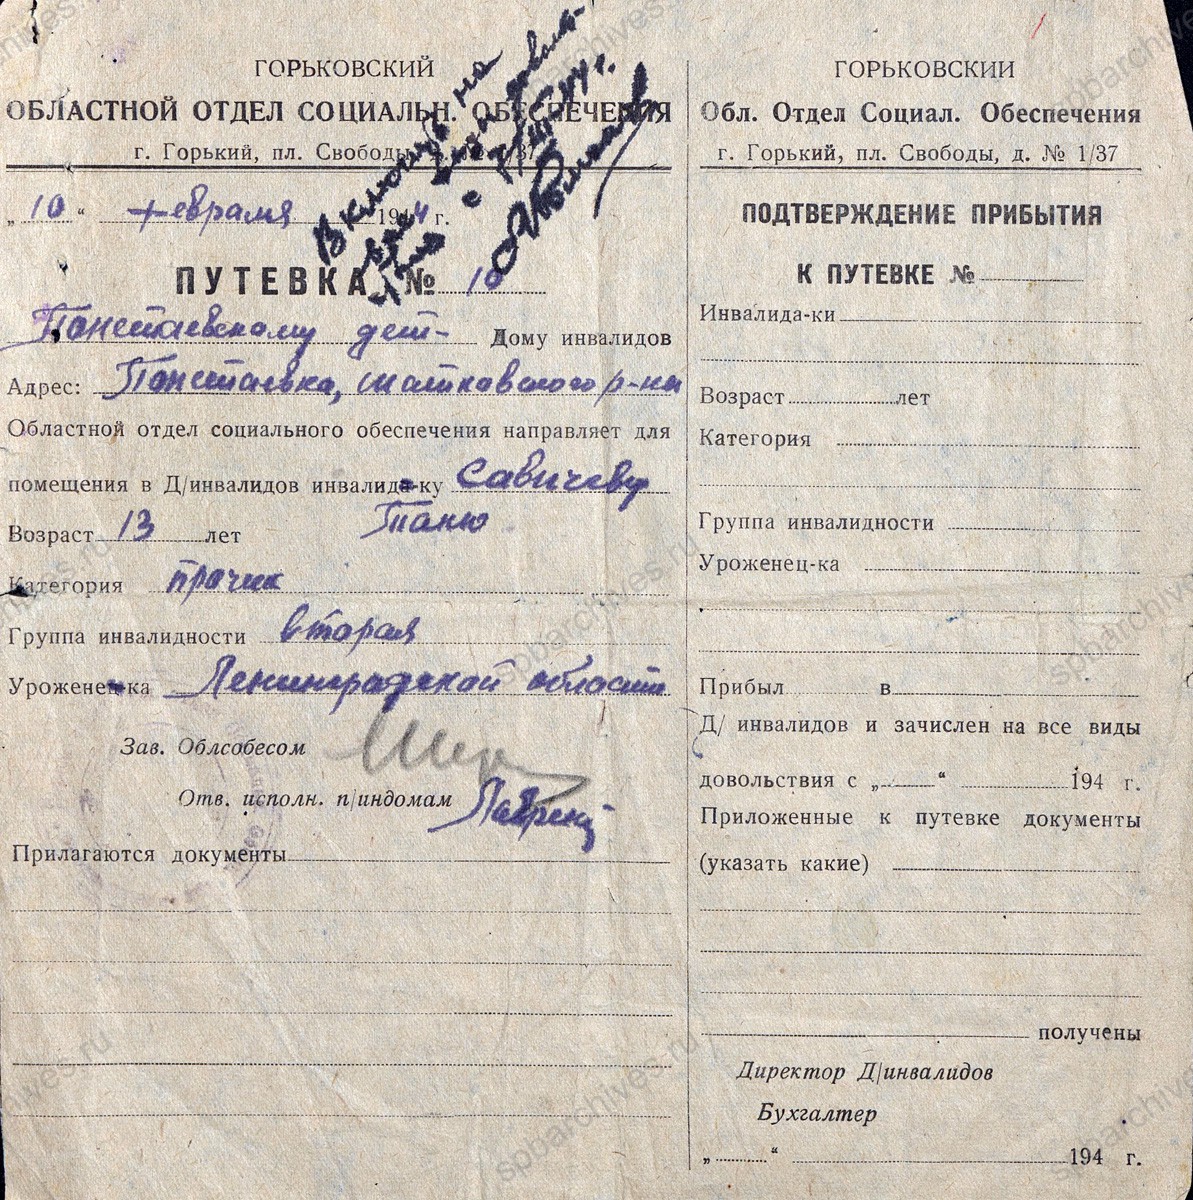 ГОРЬКОВСКИЙ
ОБЛАСТНОЙ ОТДЕЛ СОЦИАЛЬН. ОБЕСПЕЧЕНИЯ
г. Горький, пл. Свободы, д. № 1/37
Включить на
все виды доволь-
с
„ 10 “ февраля 1944 г.
ПУТЕВКА № 10
Понетаевскому дет- Дому инвалидов
Адрес: Понетаевка, Шатковского р-на
Областной отдел социального обеспечения направляет для
помещения в Д/инвалидов инвалида-ку Савичеву
Таню
Возраст 13 лет
Категория прочих
Группа инвалидности вторая
Уроженец-ка Ленинградской области
Зав. Облсобесом
Отв. исполн. п/индомам
Прилагаются документы
ГОРЬКОВСКИИ
Обл. Отдел Социал. Обеспечения
г. Горький, пл. Свободы, д. № 1/37
ПОДТВЕРЖДЕНИЕ ПРИБЫТИЯ
К ПУТЕВКЕ №
Инвалида-ки
Возраст лет
Категория
Группа инвалидности
Уроженец-ка
Прибыл в
Д/ инвалидов и зачислен на все виды
довольствия с „ “ 194 г.
Приложенные к путевке документы
(указать какие)
получены
Директор Д/инвалидов
Бухгалтер
„ “ 194 г.
spbarchives.ru